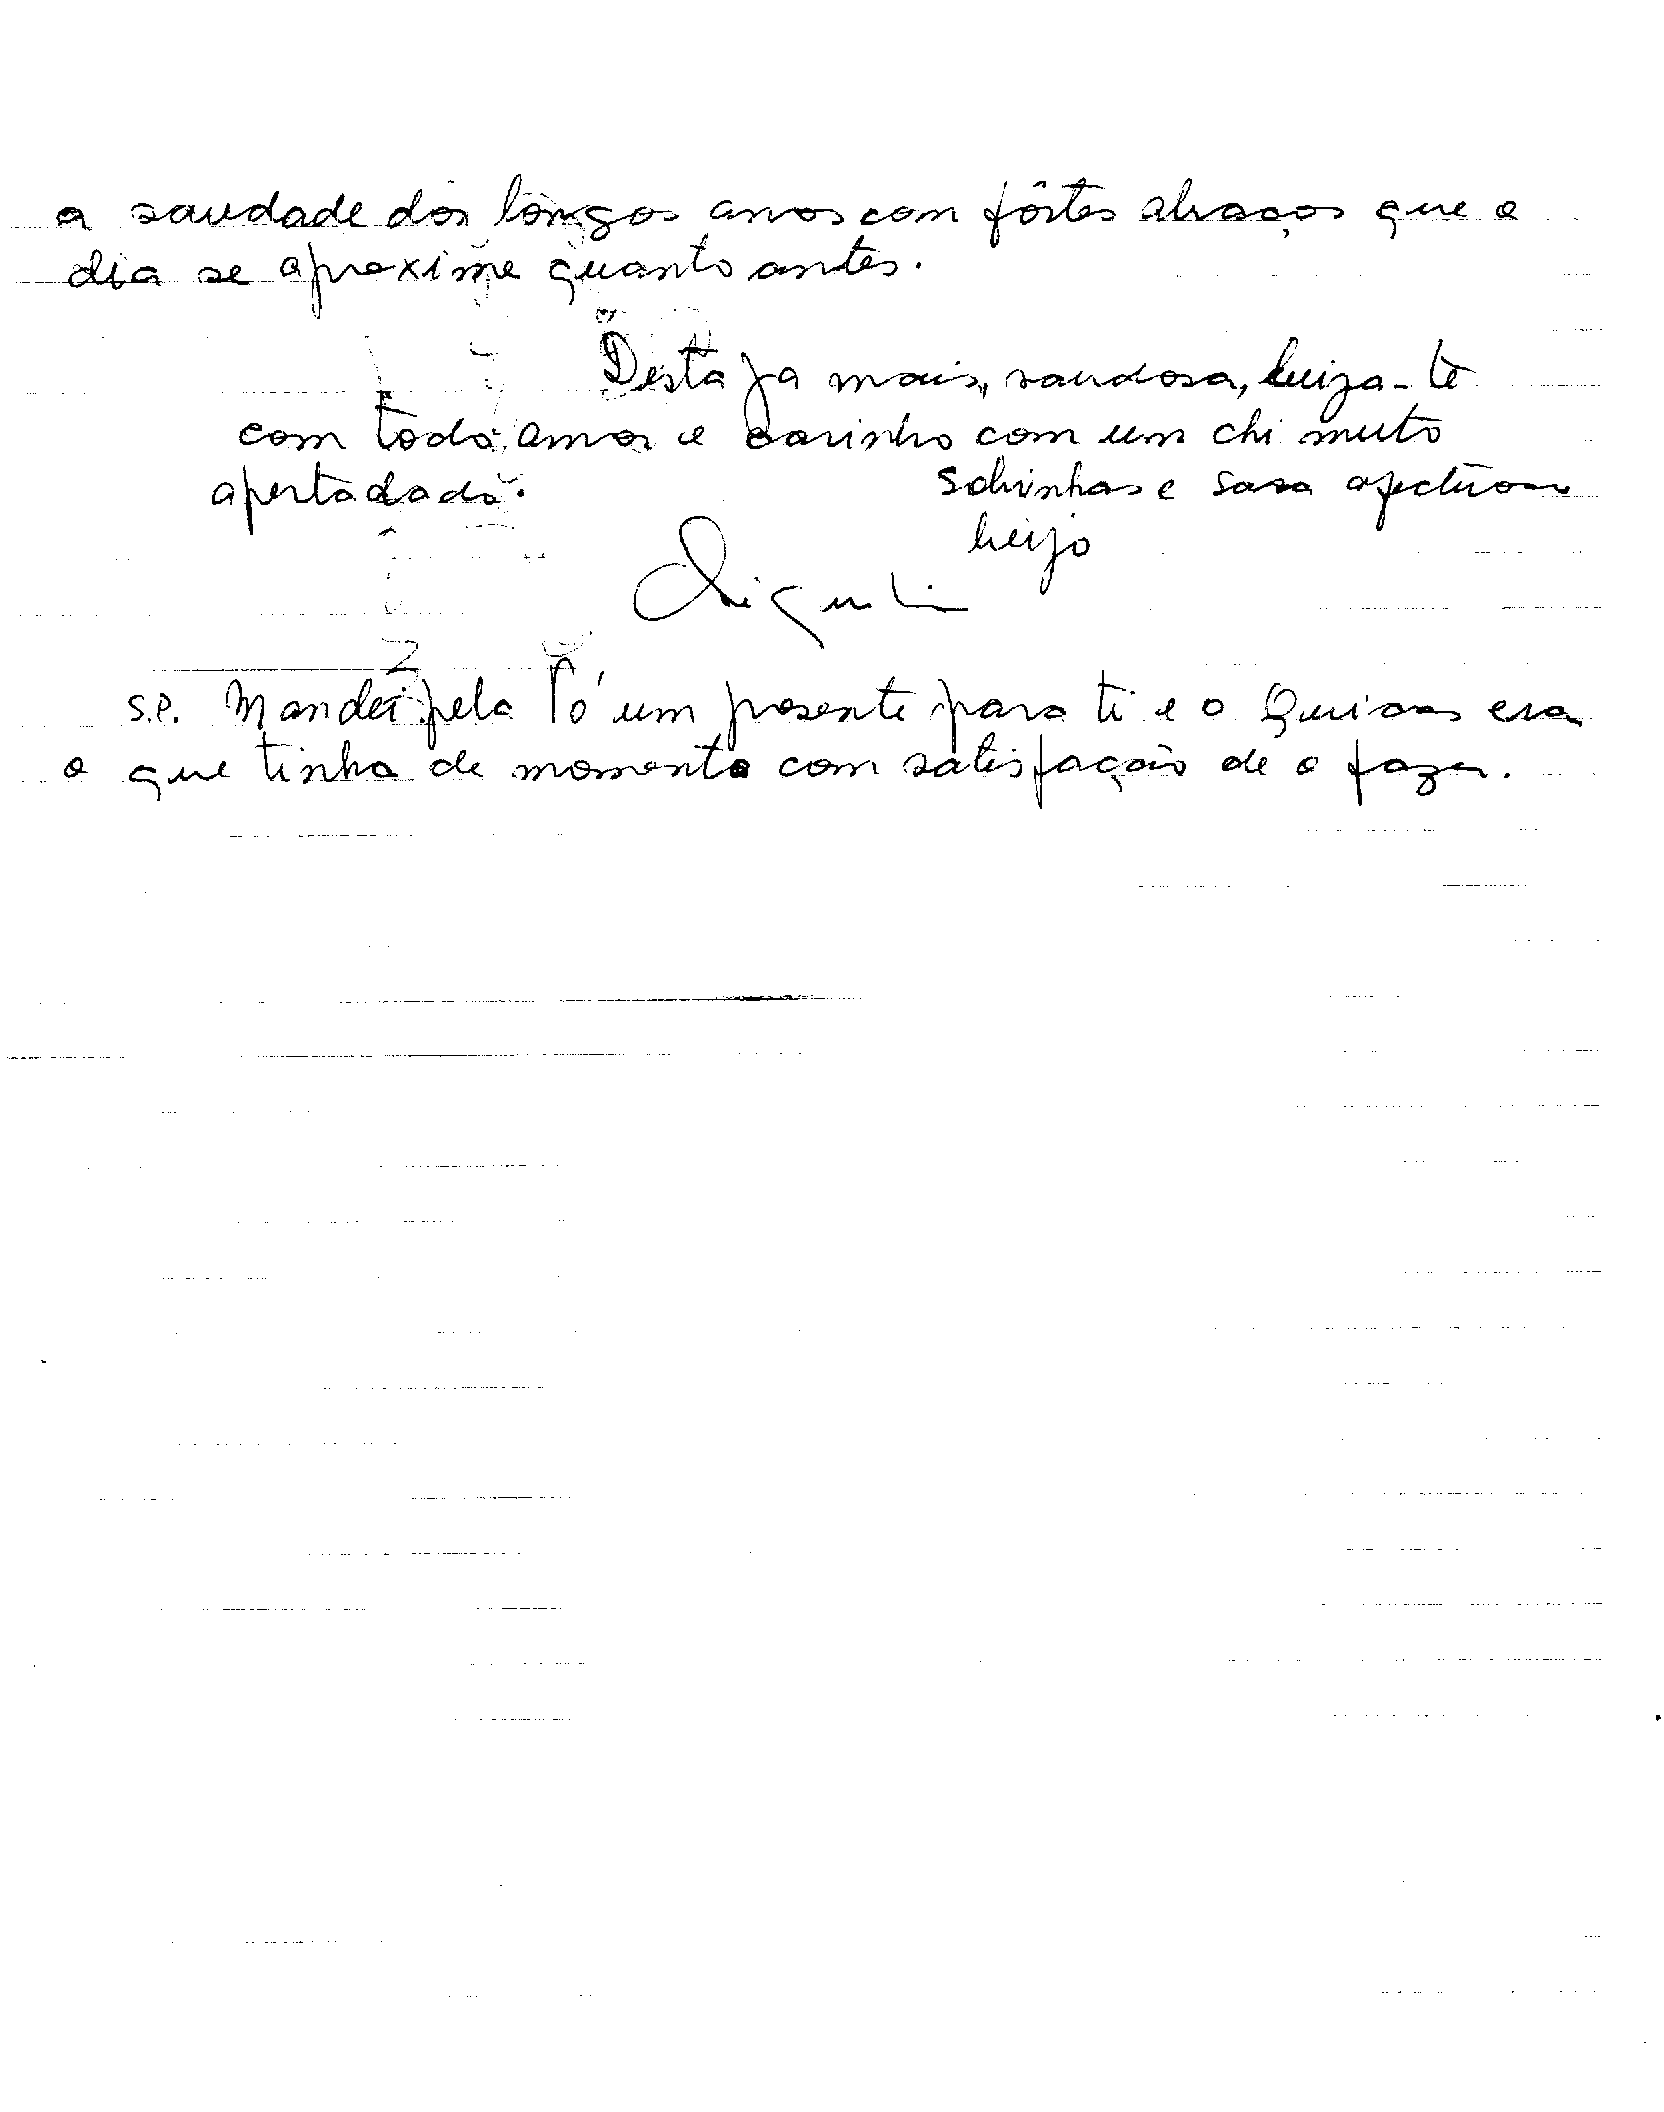 a saudade dos longos anos com fôrtes abraços que o
dia se aproxime quanto antes.
Desta ja mais, saudosa, beija-te
com todo amor e carinho com um chi muito
apertadado.
sobrinhas e sara afectuoso
beijo
S.P. Mandei pelo Tó um presente para ti e o era
o que tinha de momento com satisfação de o fazer.